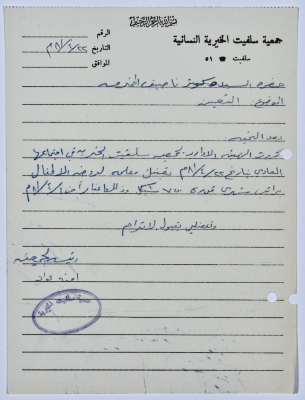 بسم الله الرحمن الرحيم
جمعية سلفيت الخيرية النسائية
سلفيت ☎ ٥١
الرقم
التاريخ ٢٢/٢/٨١
الموافق
حضرة السيدة كوثر ناصيف المحترمه
الموضوع: التعيين
بعد التحية،
قررت الهيئة الادارية لجمعية سلفيت الخيرية في اجتماعها
العادي بتاريخ ٢٢/٢/٨١ بتعيينك معلمه لروضة الاطفال
براتب شهري قدره ٧٥٠ شيكل وذلك اعتبارا من
وتفضلي بقبول الاحترام
رئيسة الجمعيه
جمعية سلفيت الخيرية